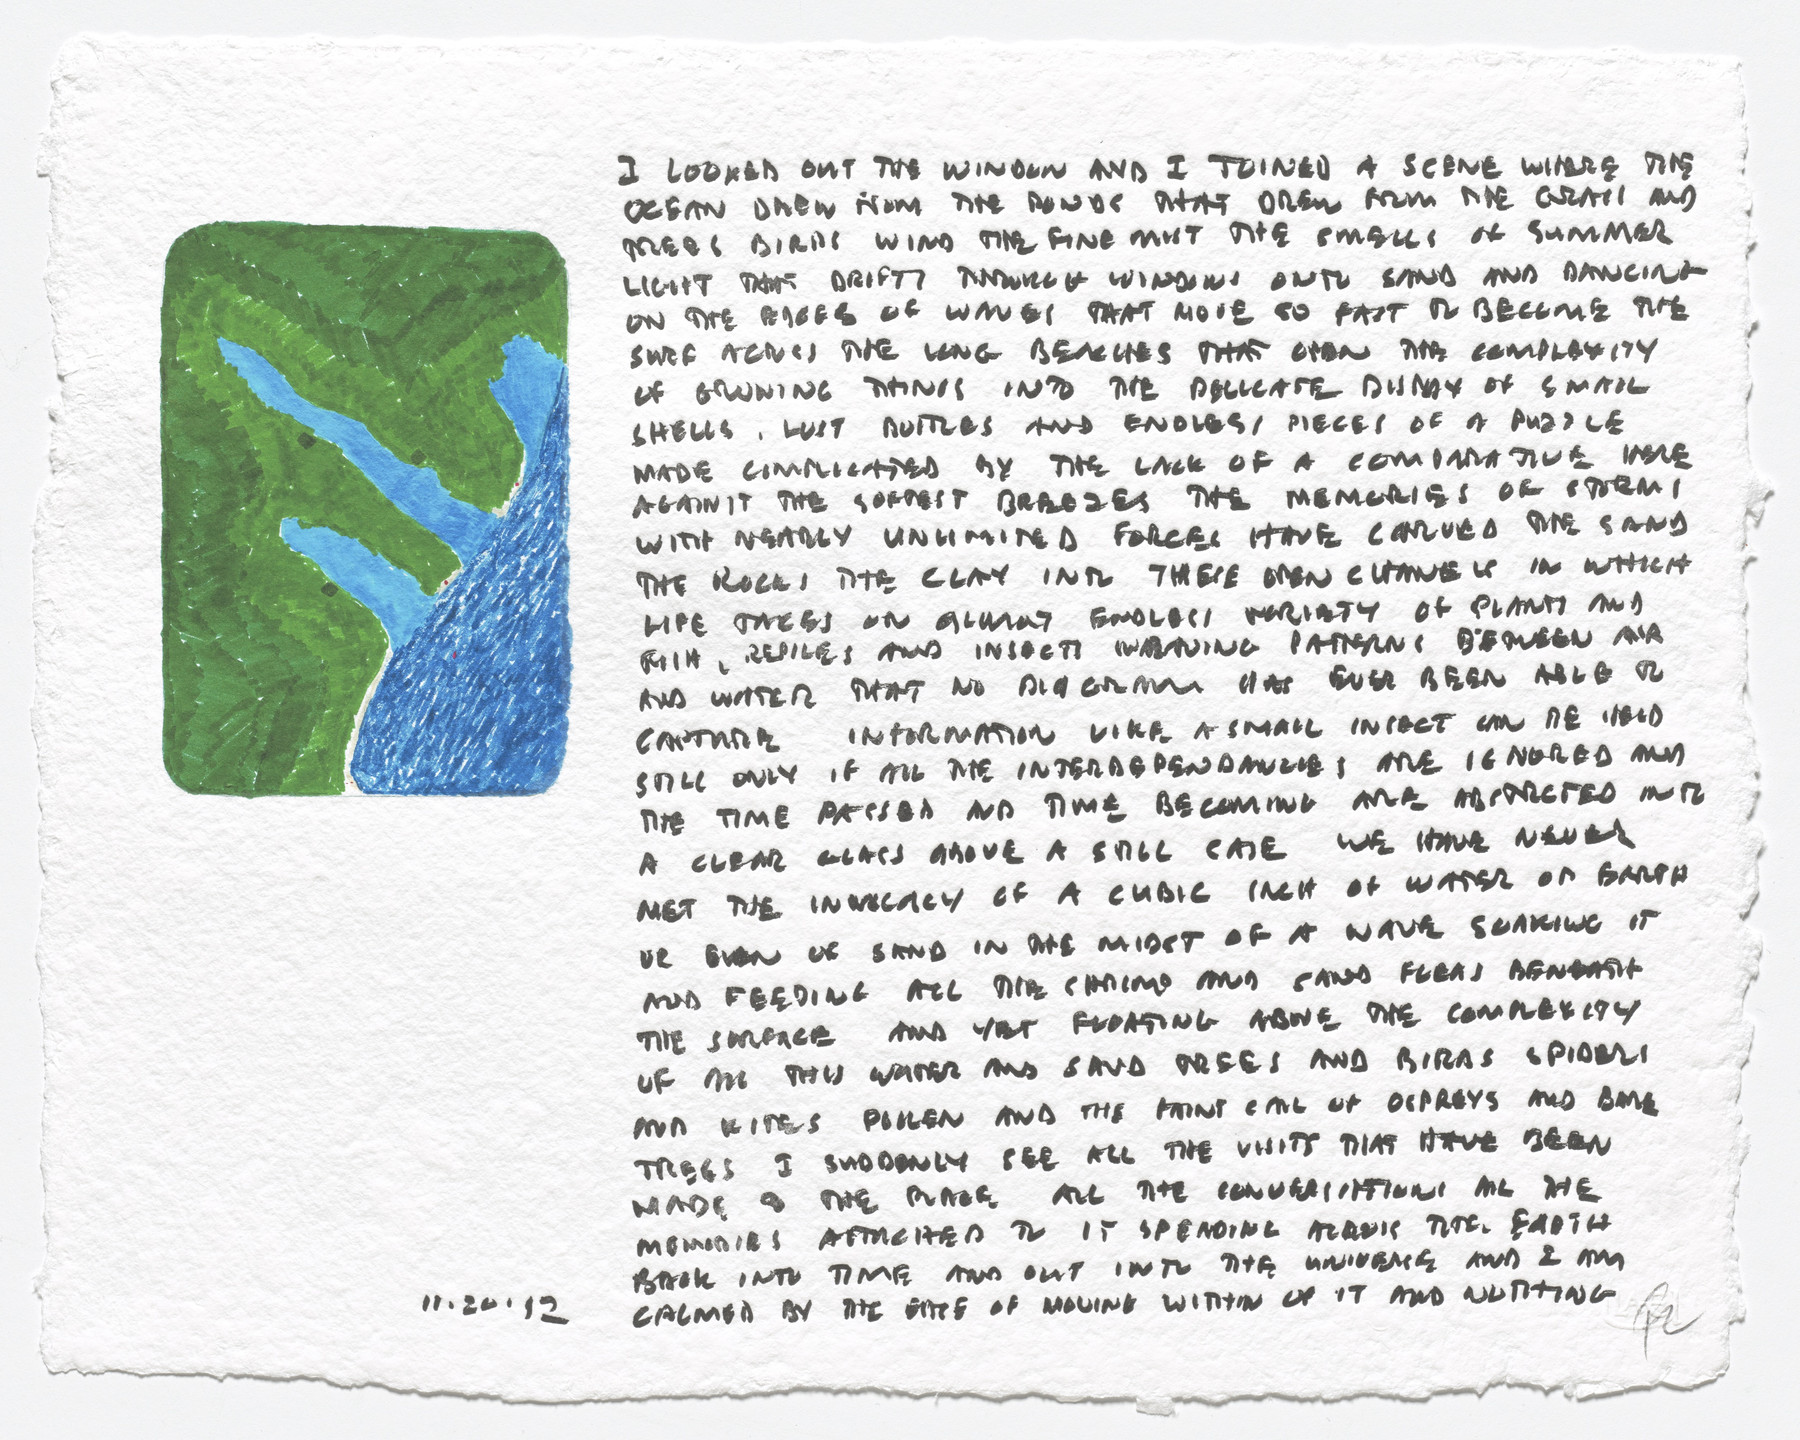 I LOOKED OUT THE WINDOW AND I JOINED A SCENE WHERE THE
OCEAN DREW FROM THE PONDS THAT DREW FROM THE GRASS AND
TREES BIRDS WIND THE FINE MIST THE SMELLS OF SUMMER
LIGHT THAT DRIFTS THROUGH WINDOWS ONTO SAND AND DANCING
ON THE EDGES OF WAVES THAT MOVE SO FAST TO BECOME THE
SURF ACROSS THE LONG BEACHES THAT OPEN THE COMPLEXITY
OF GROWING THINGS INTO THE DELICATE DISPLAY OF SMALL
SHELLS, LOST BOTTLES AND ENDLESS PIECES OF A PUZZLE
MADE COMPLICATED BY THE LACK OF A COMPARATIVE HERE
AGAINST THE SOFTEST BREEZES THE MEMORIES OF STORMS
WITH NEARLY UNLIMITED FORCES HAVE CARVED THE SAND
THE ROCKS THE CLAY INTO THESE OPEN CHANNELS IN WHICH
LIFE TAKES ON ALMOST ENDLESS VARIETY OF PLANTS AND
FISH, REPTILES AND INSECTS WEAVING PATTERNS BETWEEN AIR
AND WATER THAT NO DIAGRAM HAS EVER BEEN ABLE TO
CAPTURE INFORMATION LIKE A SMALL INSECT CAN BE HELD
STILL ONLY IF ALL THE INTERDEPENDANCIES ARE IGNORED AND
THE TIME PASSED AND TIME BECOMING ARE ABSTRACTED INTO
A CLEAR GLASS ABOVE A STILL CASE WE HAVE NEVER
MET THE OF A CUBIC INCH OF WATER OR EARTH
OR EVEN OF SAND IN THE MIDST OF A WAVE SOAKING IT
AND FEEDING ALL THE SHRIMP AND SAND FLEAS BENEATH
THE SURFACE AND YET FLOATING ABOVE THE COMPLEXITY
OF ALL THIS WATER AND SAND TREES AND BIRDS SPIDERS
AND KITES POLLEN AND THE FAINT CALL OF OSPREYS AND BARE
TREES I SUDDENLY SEE ALL THE VISITS THAT HAVE BEEN
MADE TO THE PLACE ALL THE CONVERSATIONS ALL THE
MEMORIES ATTACHED TO IT SPENDING ACROSS THE EARTH
BACK INTO TIME AND OUT INTO THE UNIVERSE AND I AM
CALMED BY THE EASE OF MOVING WITHIN OF IT AND NOTHING
11.20.12